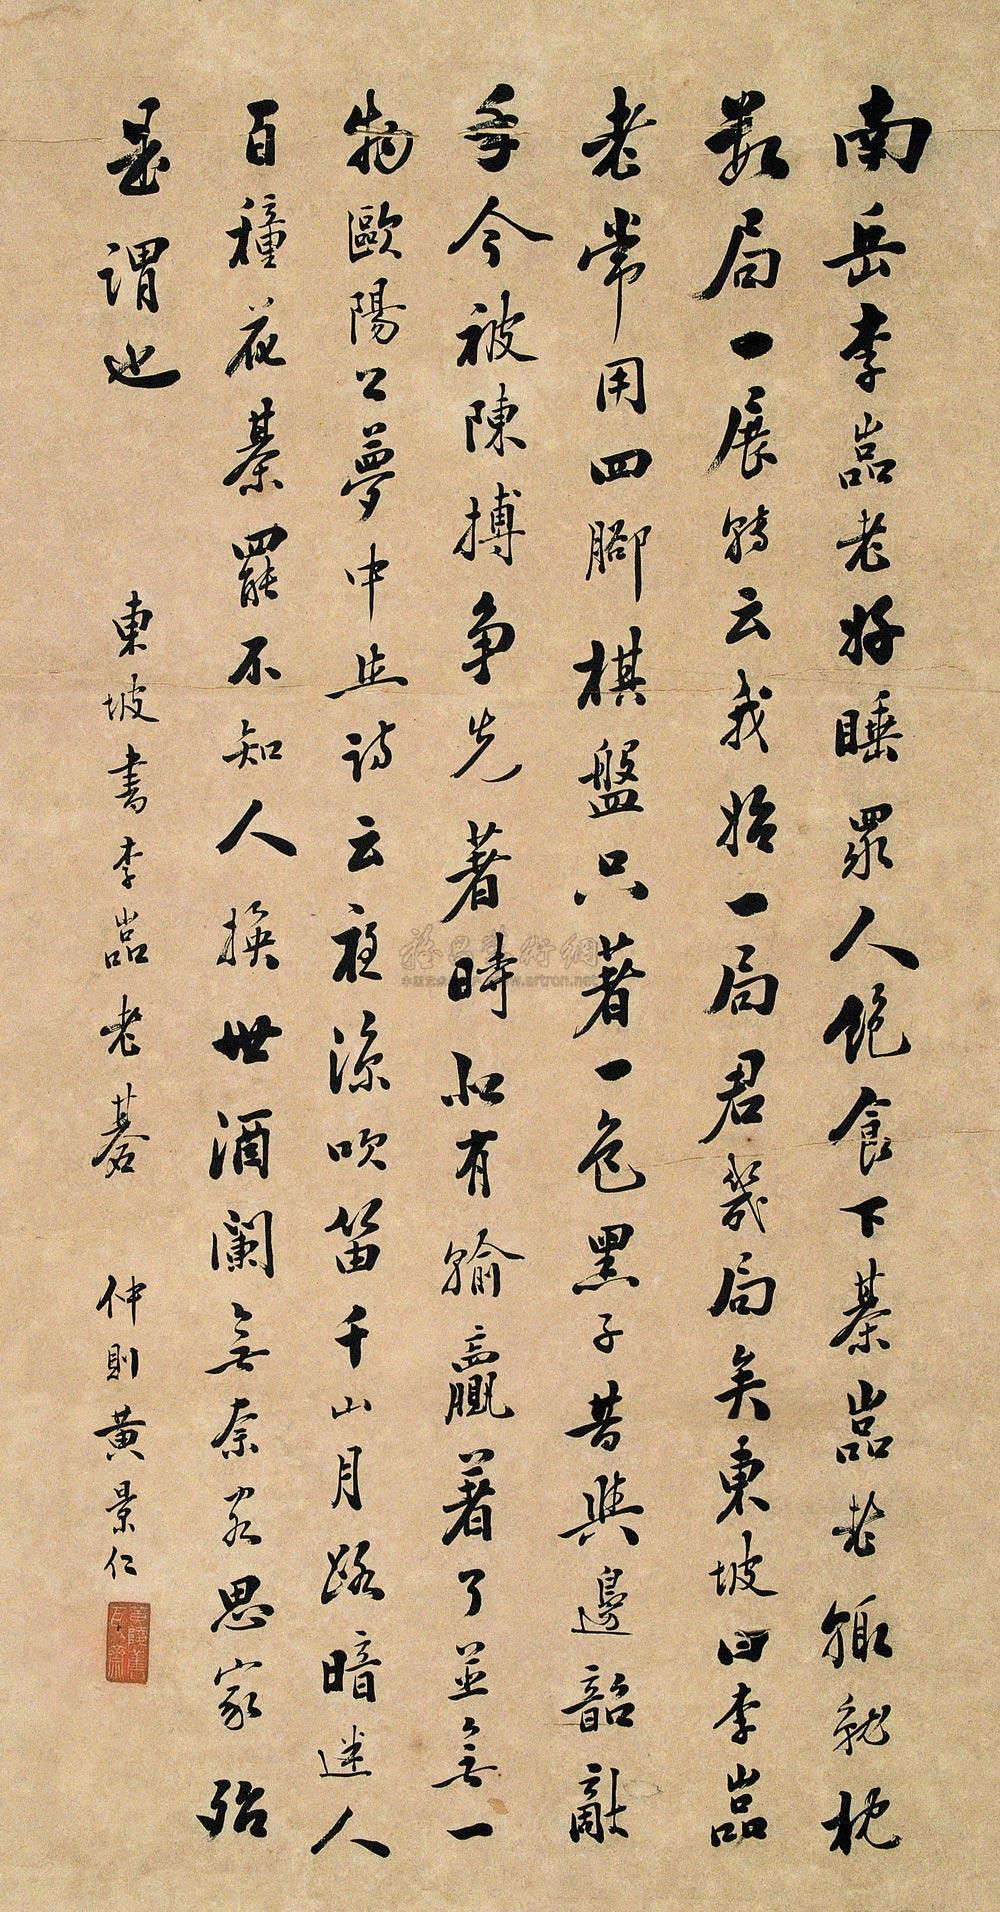 南岳李嵓老好睡眾人飽食下棊嵓老輒就枕
數局一展轉云我始一局君幾局矣東坡曰李嵓
老常用四腳棋盤只著一色黑子昔與邊韶敵
手今被陳摶爭先著時似有輸贏著了並無一
物歐陽公夢中止詩云夜涼吹笛千山月路暗迷人
百種花棊罷不知人換世酒闌無奈客思家殆
是謂也
東坡書李嵓老碁
仲則黃景仁